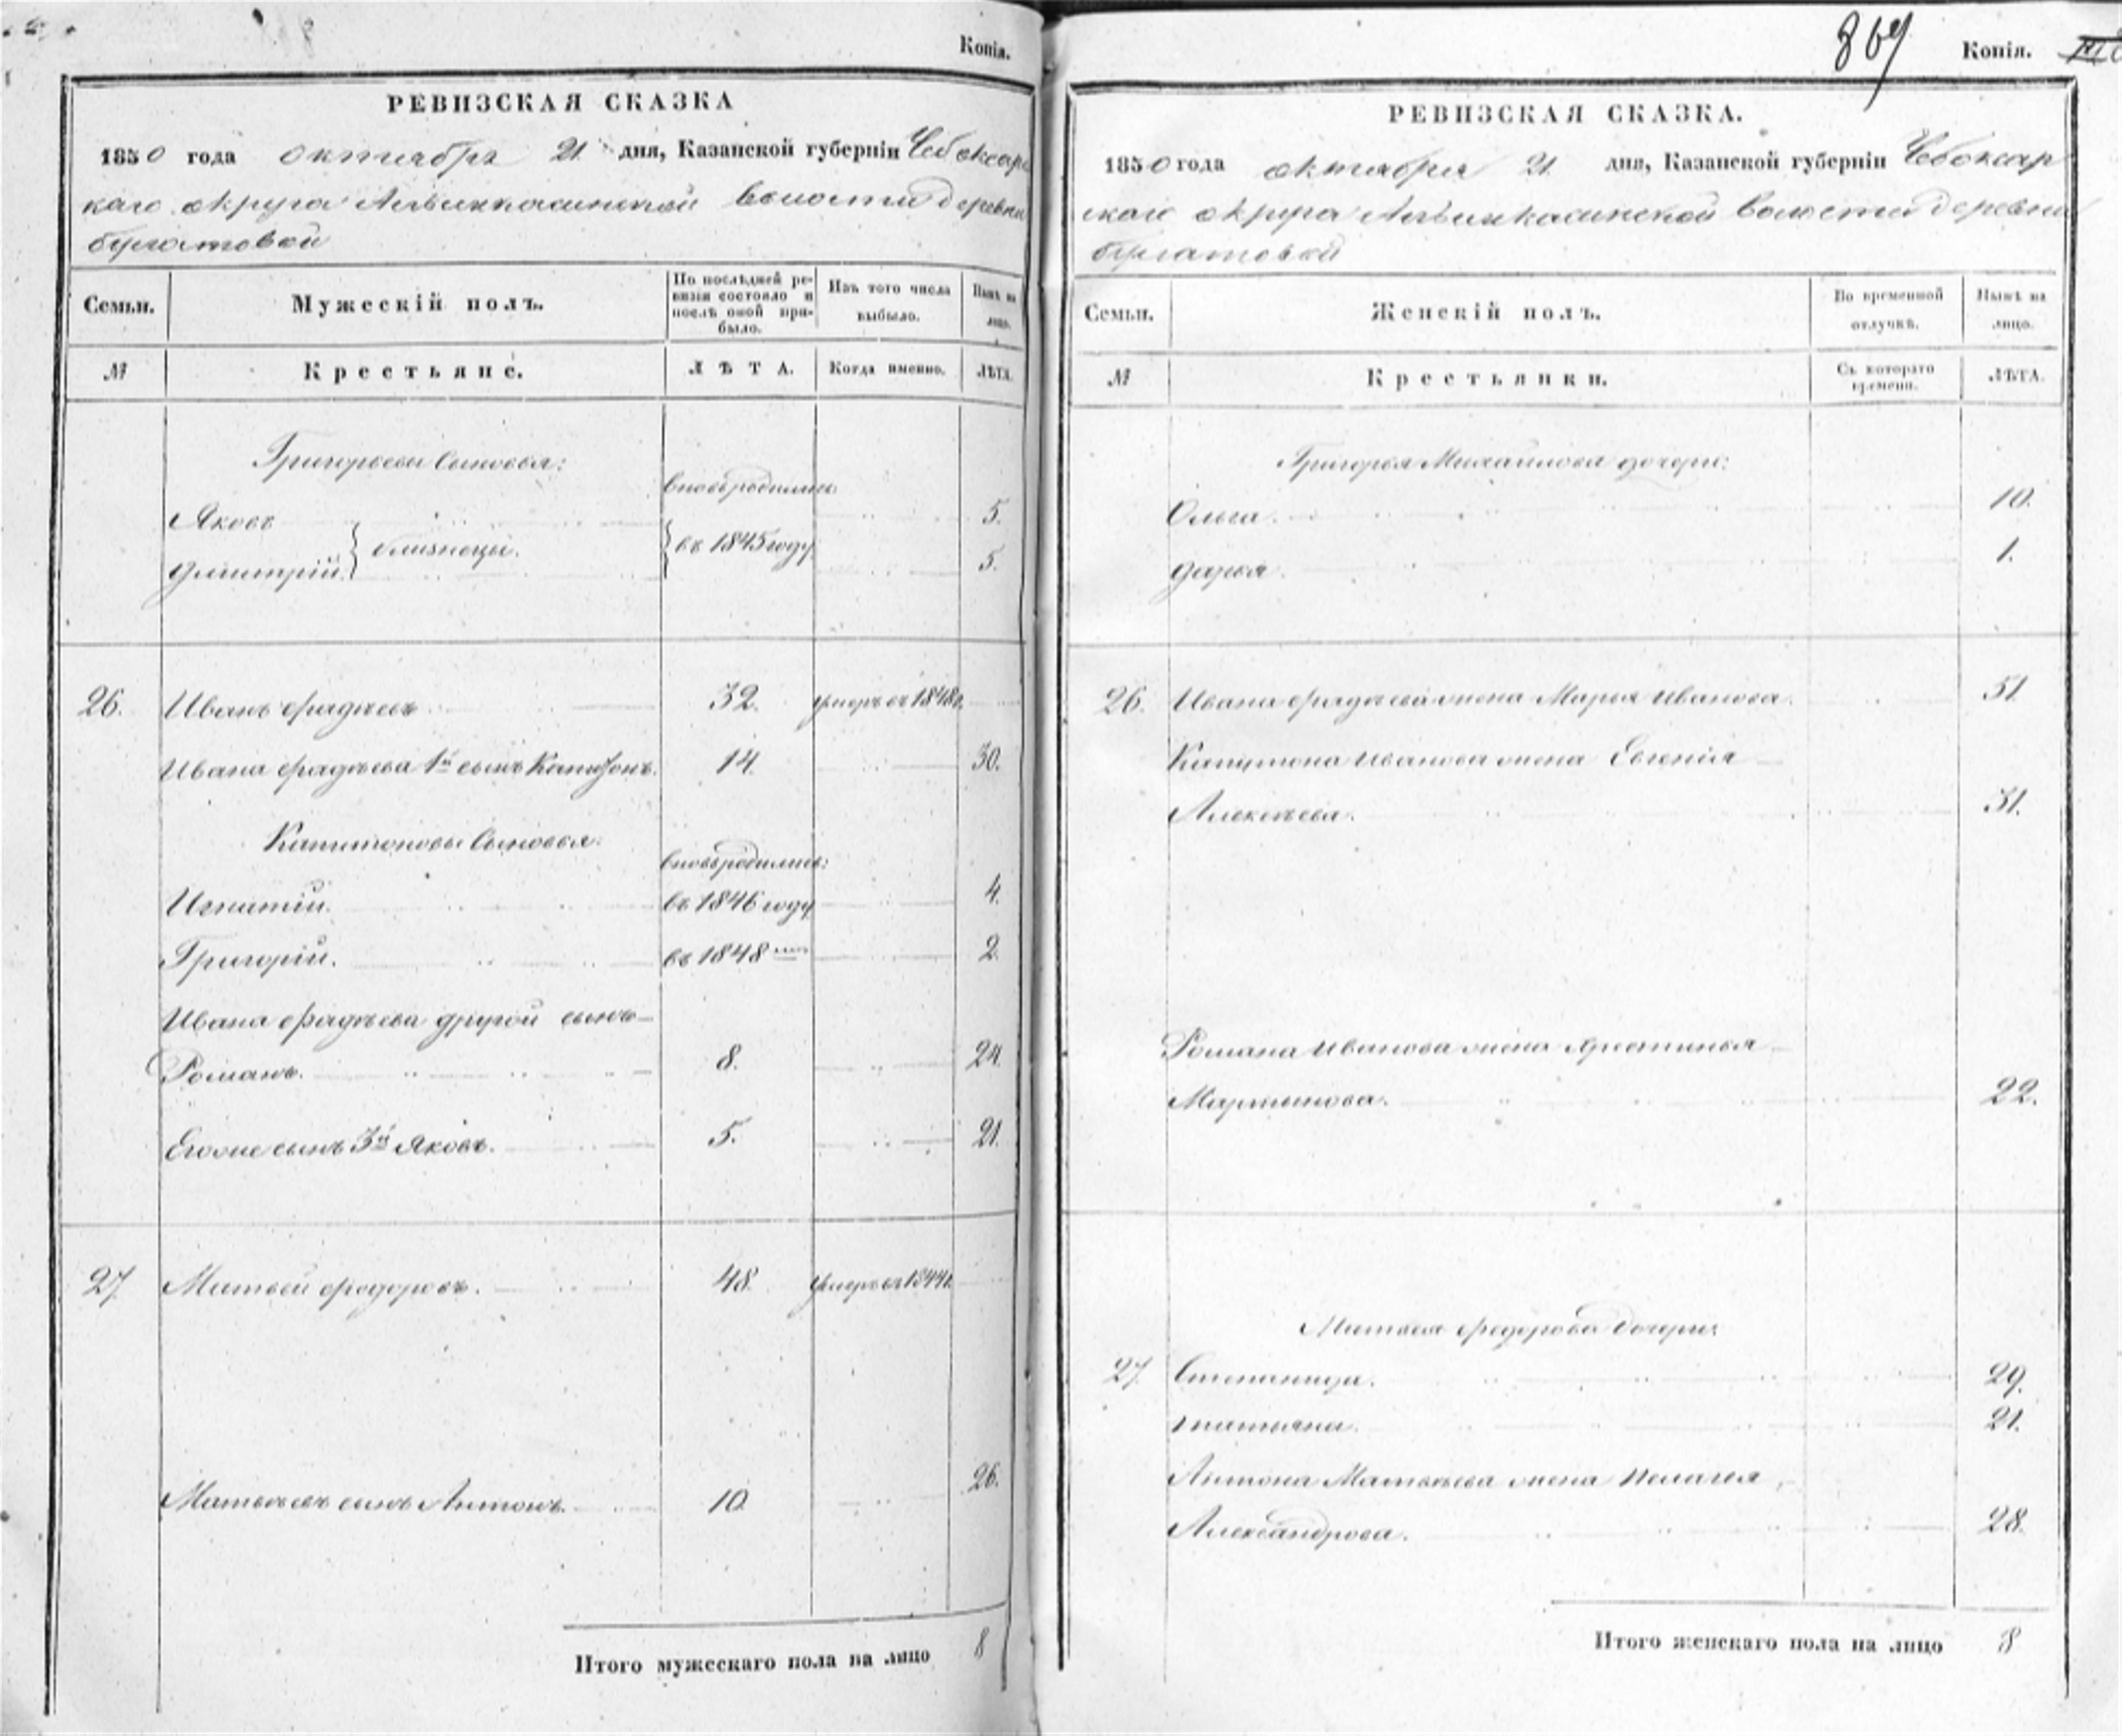 Копія.
РЕВИЗСКАЯ СКАЗКА
1850 года октября 21 дня, Казанской губерніи Чебоксарс
каго округа волости деревни
булатовой
Семьи. Мужескій полъ. По послѣдней ре-
визіи состояло и
послѣ оной при-
было. Изъ того числа
выбыло. Нынѣ на
лицо.
№ Крестьяне. ЛѢТА. Когда именно. ЛѢТА.
Григорьевы сыновья:
вновьродились
Яковъ 5.
близнецы. въ 1845 году
Дмитрій. 5.
26. Иванъ Фадѣевъ 32. умеръ въ 1848г.
Ивана Фадѣева 1й сынъ Капитонъ. 14. 30.
Капитоновы сыновья.
вновьродились:
Игнатій. въ 1846 году 4.
Григорій. въ 1848 2.
Ивана Фадѣева другой сынъ
Романъ. 8. 24.
Егоже сынъ 3й Яковъ. 5. 21.
27. Матвей Федоровъ. 48. умеръ въ 1844г.
Матвеевъ сынъ Антонъ. 10. 26.
Итого мужескаго пола на лицо 8
869 Копія.
РЕВИЗСКАЯ СКАЗКА.
1850 года октября 21 дня, Казанской губерніи Чебоксар
скаго округа волости деревни
булатовой
Семьи. Женскій полъ. Во временной
отлучкѣ. Нынѣ на
лицо.
№ Крестьянки. Съ котораго
времени. ЛѢТА.
Григорья Михайлова дочери:
Ольга. 10.
Дарья. 1.
26. Ивана Фадѣева жена Марья Иванова. 51.
Капитона Иванова жена Евгенія
Алексѣева. 31.
Романа Иванова жена Хрестинья
Мартынова. 22.
Матвея Федорова дочери:
27. Степанида. 29.
Татьяна. 21.
Антона Матвѣева жена Пелагея
Александрова. 28.
Итого женскаго пола на лицо 8